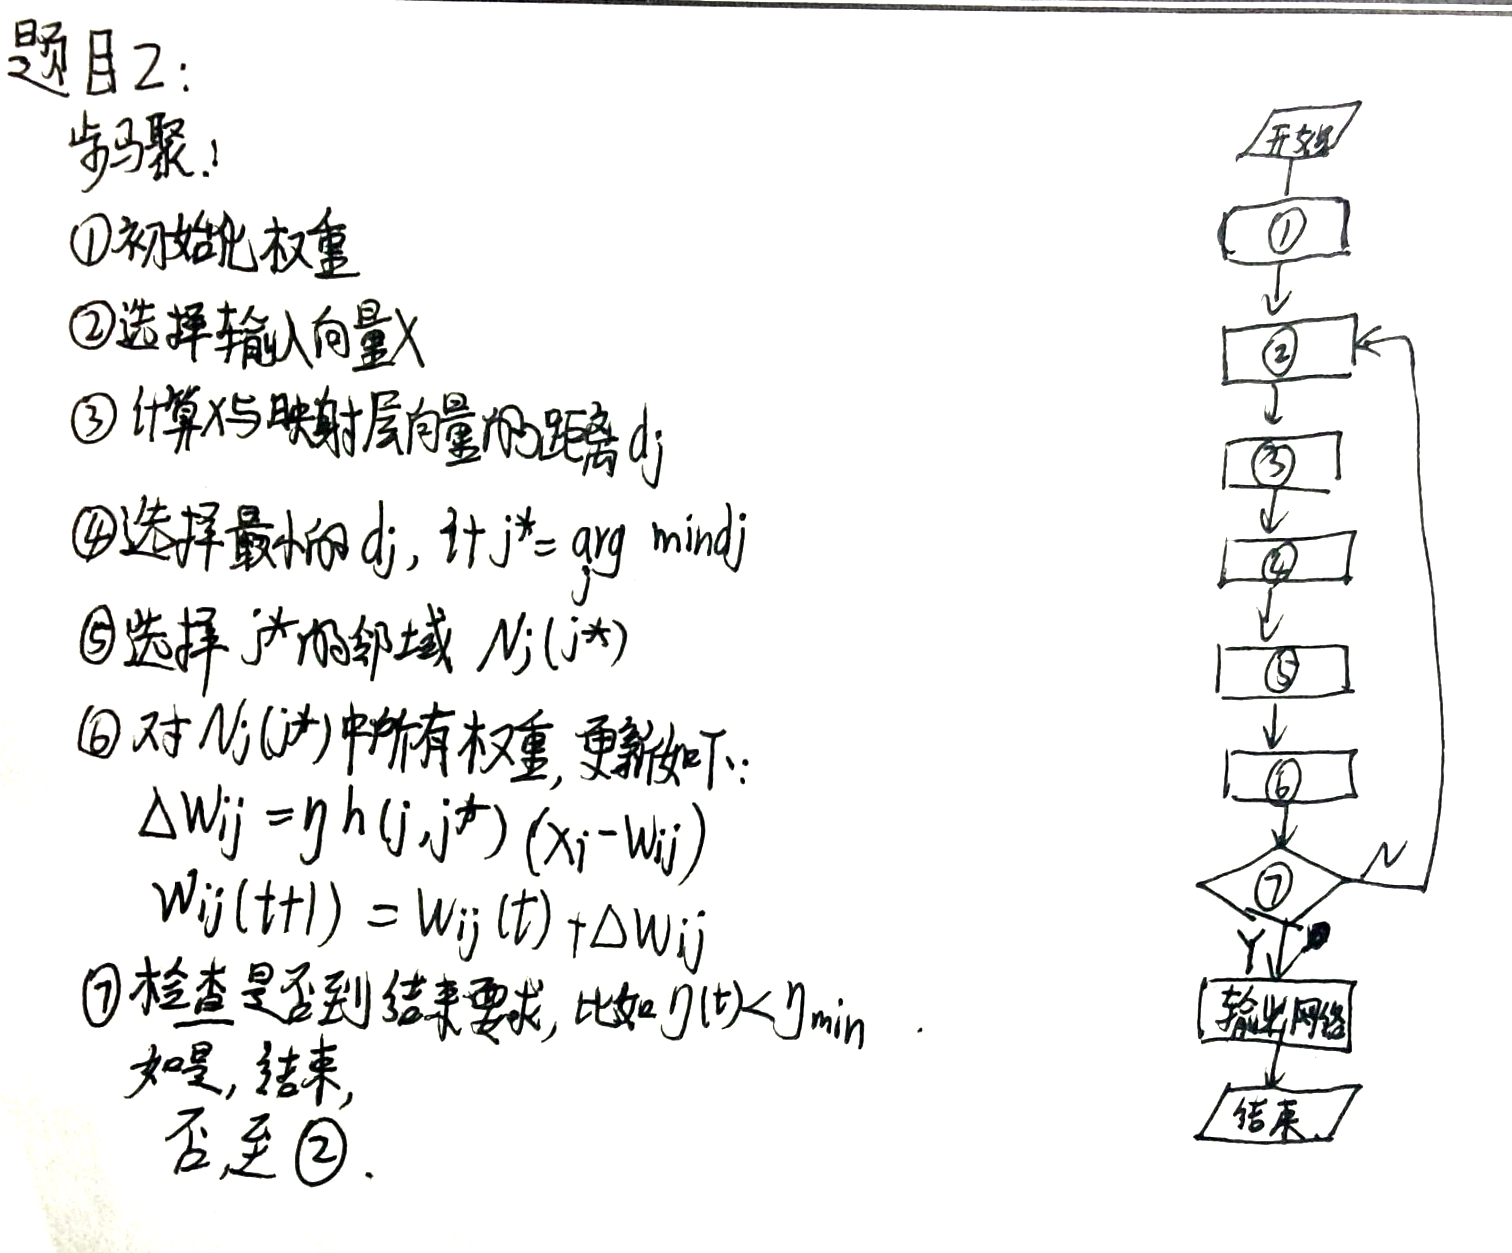 题目2:
步骤:
①初始化权重
②选择输入向量X
③计算X与映射层向量的距离dj
④选择最小的dj, 计j*= arg mindj
j
⑤选择 j*的邻域 Nj(j*)
⑥对Nj(j*)中所有权重,更新如下:
△Wij = η h(j,j*) (xi-Wij)
Wij(t+1) = Wij(t)+△Wij
⑦检查是否到结束要求, 比如η(t)<ηmin
如是, 结束,
否,至②.
开始
①
②
③
④
⑤
⑥
⑦
N
Y
输出网络
结束